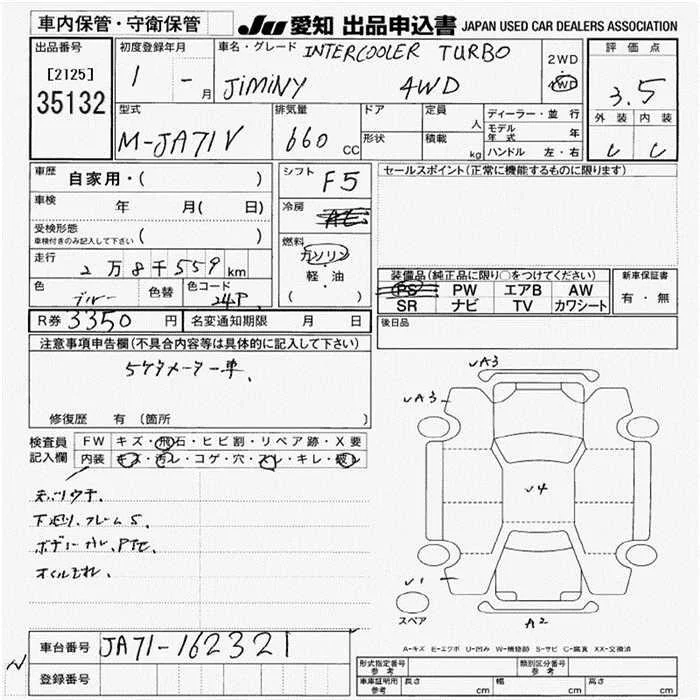 車内保管・守衛保管
JU 愛知 出品申込書 JAPAN USED CAR DEALERS ASSOCIATION
出品番号
[2125]
35132
初度登録年月
1 - 月
車名・グレード INTERCOOLER TURBO
JIMINY 4WD
2WD
4WD
評価点
3.5
外装 内装
型式
M-JA71V
排気量
660 CC
ドア
形状
定員 人
積載 kg
ディーラー・並行
モデル年式 年
ハンドル 左・右
車歴 自家用・( )
車検 年 月( 日)
受検形態
車検付きのみ記入して下さい ( )
走行 2万8千559km
色 ブルー 色替 色コード
シフト F5
冷房
燃料
ガソリン
軽・油
( )
セールスポイント(正常に機能するものに限ります)
装備品(純正品に限り○をつけてください)
PS PW エアB AW
SR ナビ TV カワシート
新車保証書
有・無
R券 3350 円 名変通知期限 月 日
後日品
注意事項申告欄(不具合内容等は具体的に記入して下さい)
5ケタメーター車、
修復歴 有(箇所 )
検査員
記入欄
FW キズ・飛石・ヒビ割・リペア跡・X要
内装 キズ・汚レ・コゲ・穴・スレ・キレ・破レ
下廻り、フレームS、
A3
A3
4
1
A2
スペア
A-キズ E-エクボ U-凹み W-補修跡 S-サビ C-腐食 XX-交換済
車台番号 JA71-162321
登録番号
形式指定番号
参考
類別区分番号
参考
車庫証明用
参考
長さ cm 幅 cm 高さ cm